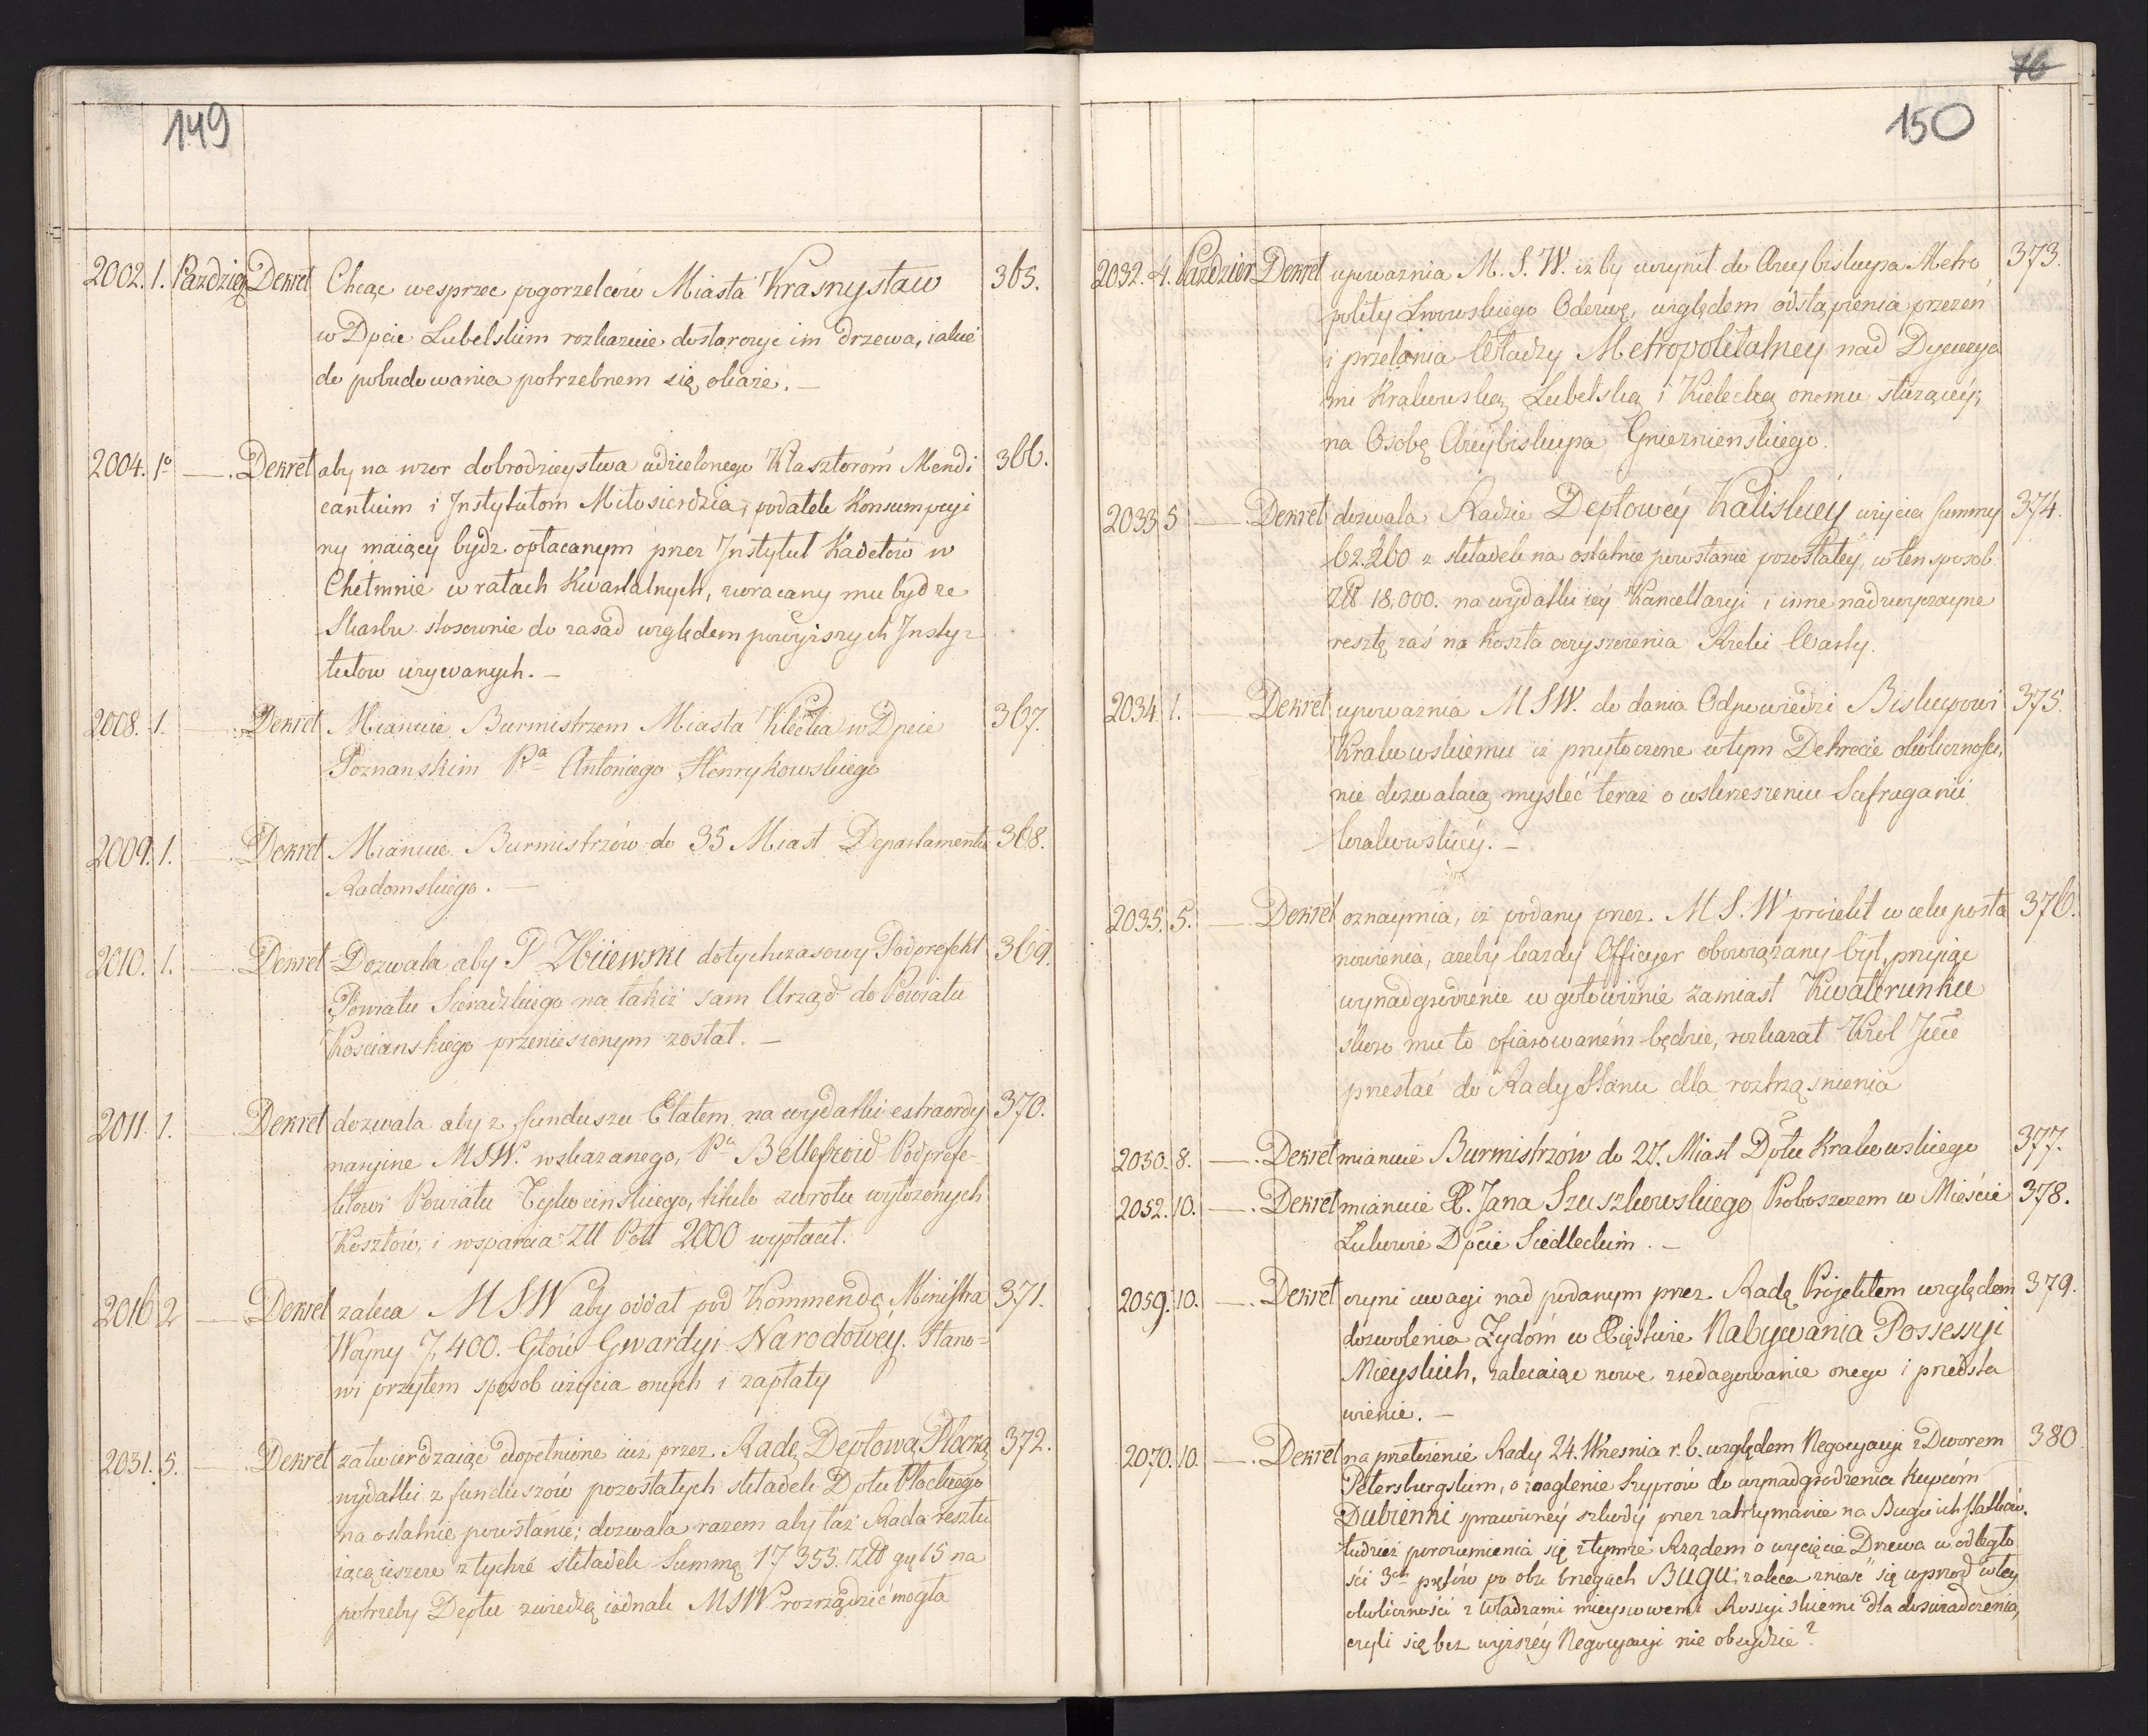 149
2002. 1. Paździer Dekret Chcąc wesprzec pogorzelców Miasta Krasnystaw 365.
w Dpcie Lubelskim rozkazuie dostarczyc im drzewa, iakie
do pobudowania potrzebnem się okaże. —
2004. 1º — . Dekret aby na wzor dobrodzieystwa udzielonego Klasztorom Mendi 366.
cantium i Instytutom Miłosierdzia, podatek Konsumpcyi
ny maiący bydz opłacanym przez Instytut Kadetów w
Chełmnie w ratach Kwartalnych, zwracany mu był ze
Skarbu stosownie do zasad względem powyższych Insty=
tutow używanych. —
2008. 1. — . Dekret Mianuie Burmistrzem Miasta Klecka w Dpcie 367.
Poznanskim Pa Antoniego Henrykowskiego
2009. 1. — . Dekret Mianuie Burmistrzów do 35 Miast Departamentu 368.
Radomskiego. —
2010. 1. — . Dekret Dozwala aby P Zbiiewski dotychczasowy Podprefekt 369.
Powiatu Sieradzkiego na takiż sam Urząd do Powiatu
Kościanskiego przeniesionym został. —
2011. 1. — . Dekret dozwala aby z funduszu Etatem na wydatki extraordy 370.
naryine MSW. wskazanego, Pu Bellefroid Podprefe=
ktowi Powiatu Tykocinskiego, titulo zwrotu wyłożonych
Kosztów, i wsparcia Zll Pol 2000 wypłacił.
2016 2 — . Dekret zaleca MSW aby oddał pod Kommendę Ministra 371.
Woyny 7,400. Głów Gwardyi Narodowéy. Stano=
wi przytem sposob użycia onych i zapłaty
2031. 5. — . Dekret zatwierdzaiąc dopełnione iuż przez Radę Deptową Płocką 372.
wydatki z funduszów pozostałych składek Dptu Płockiego
na ostatnie powstanie; dozwala razem aby taż Rada resztu
iącą ieszcze z tychże składek Summę 17355. Złł gr 15 na
potrzeby Deptu zwiedzą iednak MSW rozrządzić mogła
76
150
2032. 4. Paździer Dekret upoważnia M. S. W. iżby uczynił do Arcybiskupa Metro 373.
polity Lwowskiego Odezwę, względem odstąpienia przezeń
i przelania Władzy Metropolitalney nad Dyecezya
mi Krakowską Lubelską i Kielecką onemu służącéy,
na Osobę Arcybiskupa Gnieznienskiego.
2033 5 — . Dekret dozwala Radzie Deptowéy Kaliskiéy użycia summy 374.
62.260 z składek na ostatnie powstanie pozostałéy, w ten sposob
Złł 18,000. na wydatki iéy Kancellaryi i inne nadzwyczayne
resztę zaś na koszta oczyszczenia Rzeki Warty.
2034. 1. — Dekret upoważnia MSW. do dania Odpowiedzi Biskupowi 375.
Krakowskiemu iż przytoczone w tym Dekrecie okoliczności,
nie dozwalaią mysleć teraz o wskrzeszeniu Sufraganii
Krakowskiéy. —
2035. 5. — Dekret oznaymia, iż podany przez M S. W proiekt w celu posta 376.
nowienia, ażeby każdy Officyer obowiązany był przyiąc
wynadgrodzenie w gotowiznie zamiast Kwaterunku
skoro mu to ofiarowaném będzie, rozkazał Krol Jmć
przesłać do Rady Stanu dla roztrząsnienia
2050. 8. — . Dekret mianuie Burmistrzów do 27. Miast Dptu Krakowskiego 377.
2052. 10. — . Dekret mianuie X. Jana Szuszkowskiego Proboszczem w Mieście 378.
Łukowie Dpcie Siedleckim. —
2059. 10. — . Dekret czyni uwagi nad podanym przez Radę Projektem względem 379.
dozwolenia Zydóm w Xięstwie Nabywania Possessyi
Mieyskich, zalecaiąc nowe zredagowanie onego i przedsta
wienie. —
2070. 10. — . Dekret na przełożenie Rady 24. Wrzesnia r. b. względem Negocyacyi z Dworem 380
Petersburgskim, o znaglenie Szyprów do wynadgrodzenia Kupcóm
Dubienni sprawionéy szkody przez zatrzymanie na Bugu ich Statków.
tudzież porozumienia się z tymże Rządem o wycięcie Drzewa w odległo
ści 3ch prętów po obu brzegach Bugu, zaleca znieść się wprzod w téy
okoliczności z Władzami mieyscowemi Rossyiskiemi dla doswiadczenia,
czyli się bez wyższéy Negocyacyi nie obeydzie?